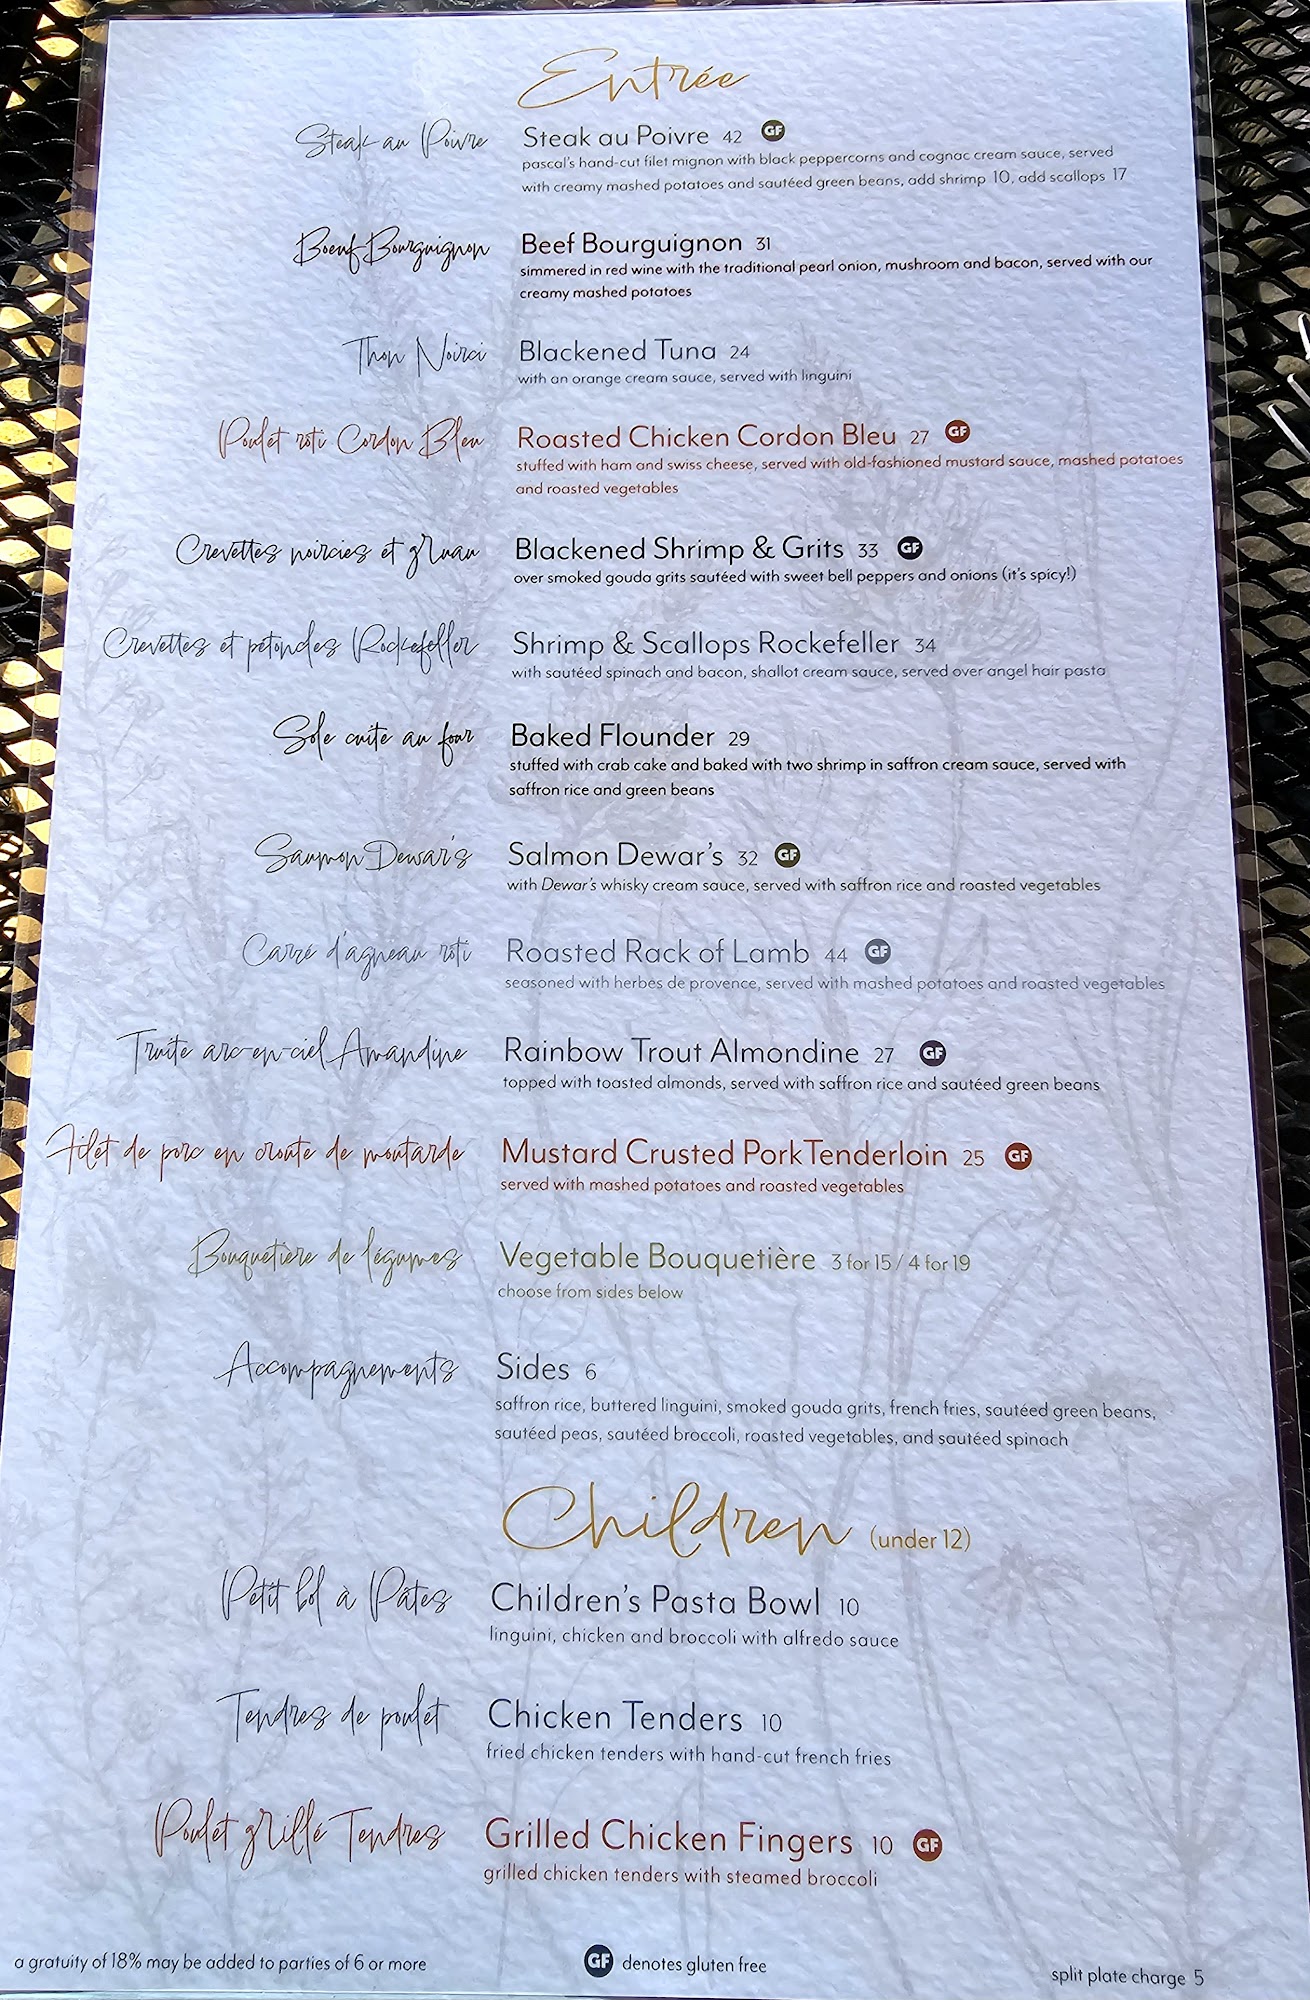 Entrée
Steak au Poivre Steak au Poivre 42 GF
pascal's hand-cut filet mignon with black peppercorns and cognac cream sauce, served
with creamy mashed potatoes and sautéed green beans, add shrimp 10, add scallops 17
Boeuf Bourguignon Beef Bourguignon 31
simmered in red wine with the traditional pearl onion, mushroom and bacon, served with our
creamy mashed potatoes
Thon Noirci Blackened Tuna 24
with an orange cream sauce, served with linguini
Poulet roti Cordon Bleu Roasted Chicken Cordon Bleu 27 GF
stuffed with ham and swiss cheese, served with old-fashioned mustard sauce, mashed potatoes
and roasted vegetables
Crevettes noircies et gruau Blackened Shrimp & Grits 33 GF
over smoked gouda grits sautéed with sweet bell peppers and onions (it's spicy!)
Crevettes et pétondes Rockefeller Shrimp & Scallops Rockefeller 34
with sautéed spinach and bacon, shallot cream sauce, served over angel hair pasta
Sole cuite au four Baked Flounder 29
stuffed with crab cake and baked with two shrimp in saffron cream sauce, served with
saffron rice and green beans
Saumon Dewar's Salmon Dewar's 32 GF
with Dewar's whisky cream sauce, served with saffron rice and roasted vegetables
Carré d'agneau roti Roasted Rack of Lamb 44 GF
seasoned with herbes de provence, served with mashed potatoes and roasted vegetables
Truite arc-en-ciel Amandine Rainbow Trout Almondine 27 GF
topped with toasted almonds, served with saffron rice and sautéed green beans
Filet de porc en croute de moutarde Mustard Crusted Pork Tenderloin 25 GF
served with mashed potatoes and roasted vegetables
Bouquetière de légumes Vegetable Bouquetière 3 for 15 / 4 for 19
choose from sides below
Accompagnements Sides 6
saffron rice, buttered linguini, smoked gouda grits, french fries, sautéed green beans,
sautéed peas, sautéed broccoli, roasted vegetables, and sautéed spinach
Children (under 12)
Petit bol à Pâtes Children's Pasta Bowl 10
linguini, chicken and broccoli with alfredo sauce
Tendres de poulet Chicken Tenders 10
fried chicken tenders with hand-cut french fries
Poulet grillé Tendres Grilled Chicken Fingers 10 GF
grilled chicken tenders with steamed broccoli
a gratuity of 18% may be added to parties of 6 or more GF denotes gluten free split plate charge 5